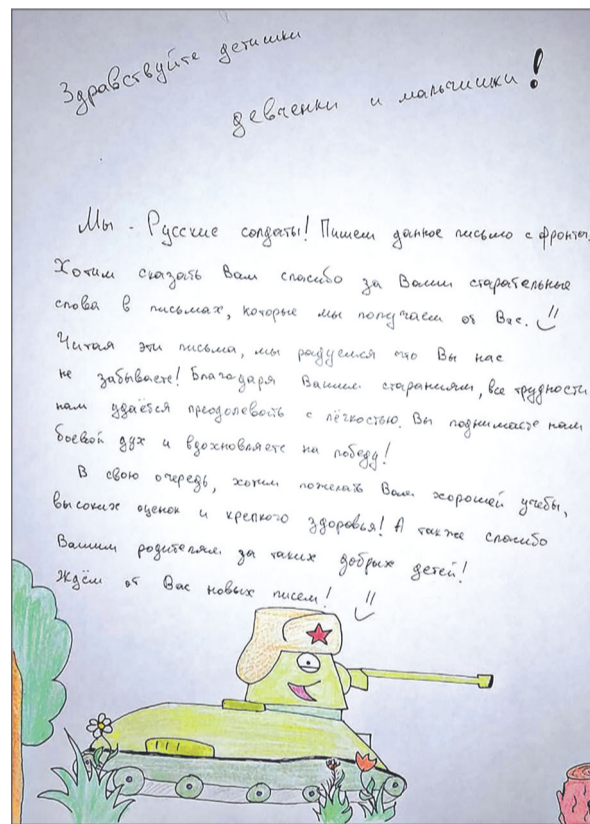 Здравствуйте детишки
девченки и мальчишки!
Мы - Русские солдаты! Пишем данное письмо с фронта.
Хотим сказать Вам спасибо за Ваши старательные
слова в письмах, которые мы получаем от Вас.
Читая эти письма, мы радуемся что Вы нас
не забываете! Благодаря Вашим стараниям, все трудности
нам удаётся преодолевать с лёгкостью. Вы поднимаете нам
боевой дух и вдохновляете на победу!
В свою очередь, хотим пожелать Вам хорошей учебы,
высоких оценок и крепкого здоровья! А также спасибо
Вашим родителям за таких добрых детей!
Ждём от Вас новых писем!